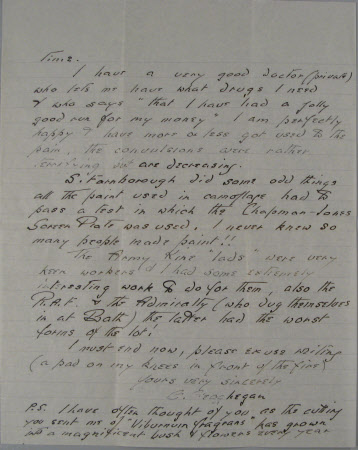 time.
I have a very good doctor (private)
who lets me have what drugs I need
& who says "that I have had a jolly
good run for my money" I am perfectly
happy & have more or less got used to the
pain, the convulsions were rather
are decreasing.
S. Farnborough did some odd things
all the paint used in camoflage had to
pass a test in which the Chapman-Jones
Screen Plate was used. I never knew so
many people made paint!!
The Army Kine "lads" were very
keen workers & I had some extremely
interesting work to do for them, also the
R.A.F. & the Admiralty (who dug themselves
in at Bath) the latter had the worst
forms of the lot!
I must end now, please excuse writing
(a pad on my knees in front of the fire)
Yours very sincerely
P.S. I have often thought of you as the cutting
you sent me of "Viburnum fragrans" has grown
into a magnificent bush & flowers every year